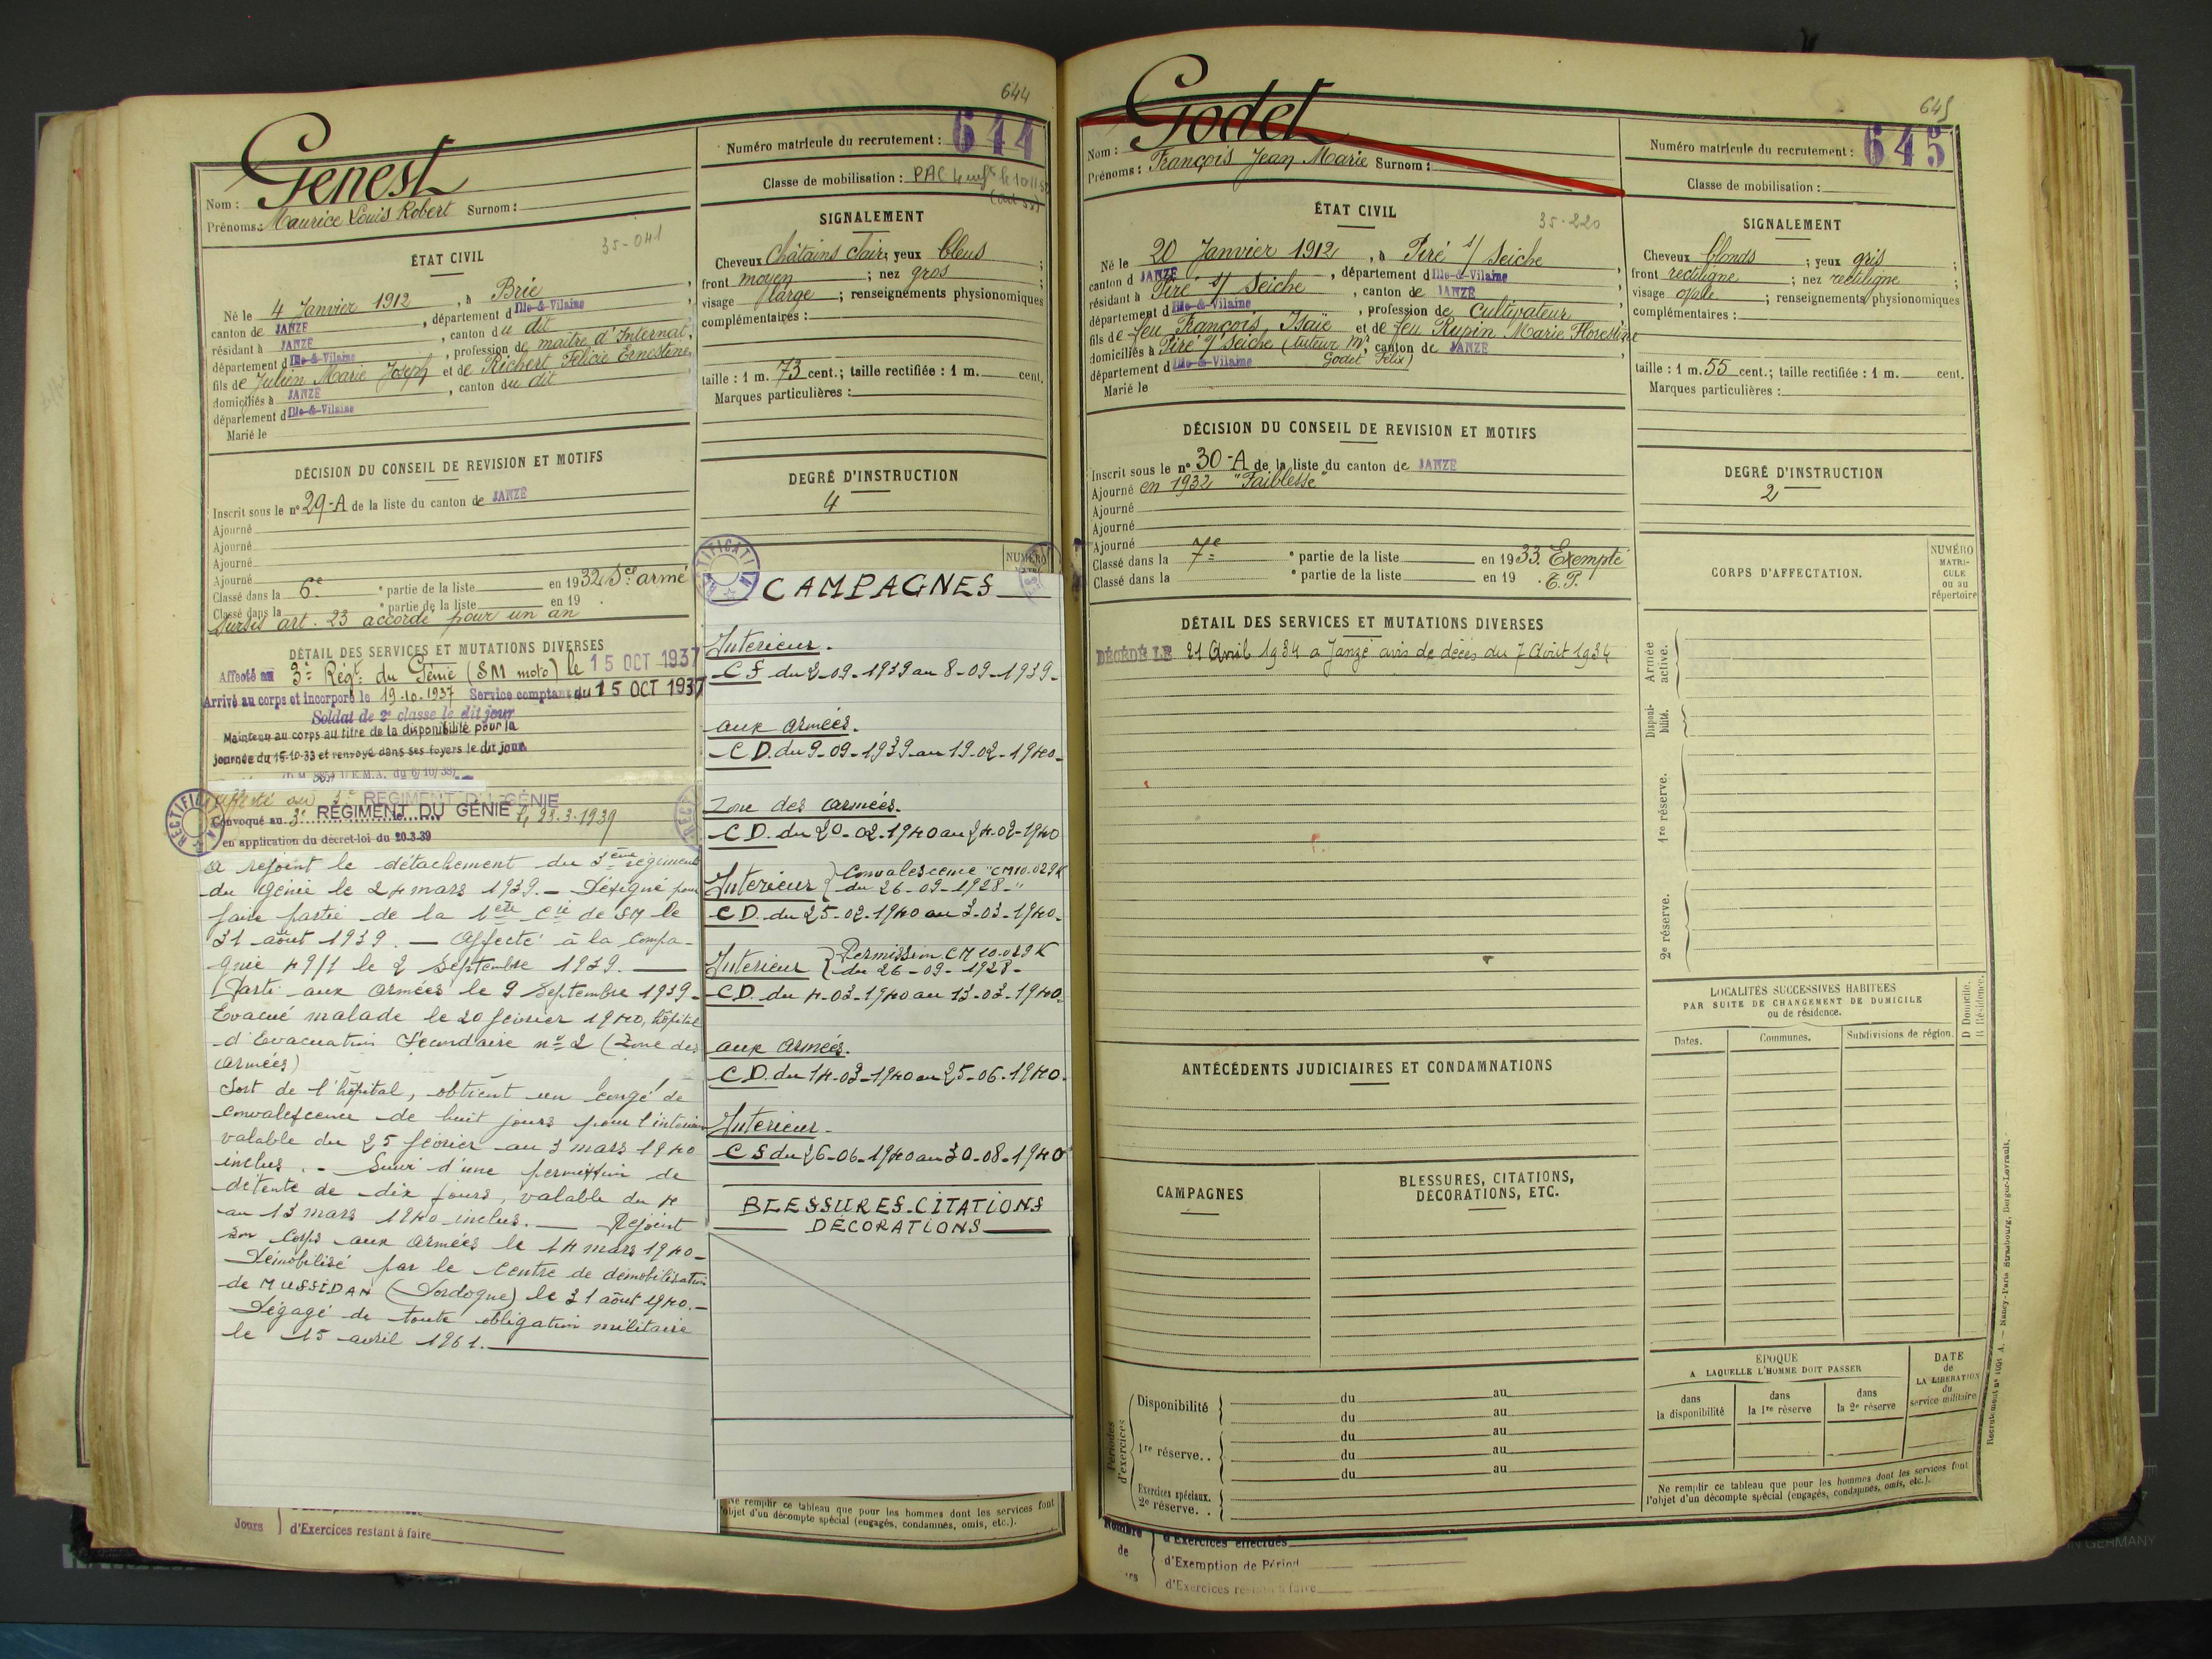 644
Genest
Nom :
Prénoms : Maurice Louis Robert Surnom :
Numéro matricule du recrutement : 644
Classe de mobilisation : PAC
ÉTAT CIVIL
35-041
Né le 4 Janvier 1912, à Brie,
canton de JANZÉ, département d Ille-&-Vilaine,
résidant à JANZÉ, canton du dit
département d Ille-&-Vilaine, profession de maître d'Internat,
fils de Julien Marie Joseph et de Richert Félicie Ernestine,
domiciliés à JANZÉ, canton du dit
département d Ille-&-Vilaine
Marié le
SIGNALEMENT
Cheveux Châtains clair; yeux bleus ;
front moyen ; nez gros ;
visage large ; renseignements physionomiques
complémentaires :
taille : 1 m. 73 cent.; taille rectifiée : 1 m. cent.
Marques particulières :
DÉCISION DU CONSEIL DE REVISION ET MOTIFS
Inscrit sous le n° 29-A de la liste du canton de JANZÉ
Ajourné
Ajourné
Ajourné
Ajourné
Classé dans la 6e ° partie de la liste en 1932 Sce armé
Classé dans la ° partie de la liste en 19 .
Sursis art. 23 accordé pour un an
DEGRÉ D'INSTRUCTION
4
DÉTAIL DES SERVICES ET MUTATIONS DIVERSES
Affecté au 3e Régt. du Génie (SM moto) le 15 OCT 1937
Arrivé au corps et incorporé le 19.10.1937 Service comptant du 15 OCT 1937
Soldat de 2e classe le dit jour
Maintenu au corps au titre de la disponibilité pour la
journée du 15-10-33 et renvoyé dans ses foyers le dit jour
Affecté au 3e REGIMENT DU GÉNIE
Convoqué au 3e REGIMENT DU GENIE le 23.3.1939
en application du décret-loi du 20-3-39
RECTIFI
A rejoint le détachement du 3ème régiment
du génie le 24 mars 1939. — Désigné pour
faire partie de la 1ère Cie de SM le
31 août 1939. — Affecté à la Compa-
gnie 49/1 le 2 Septembre 1939. —
Parti aux armées le 9 Septembre 1939 -
Evacué malade le 20 février 1940, hôpital
d'Evacuation Secondaire n° 2 (Zone des
armées)
Sort de l'hôpital, obtient un congé de
convalescence de huit jours pour l'intérieur
valable du 25 février au 3 mars 1940
inclus. - Suivi d'une permission de
détente de dix jours, valable du 4
au 13 mars 1940 inclus. — Rejoint
son Corps aux armées le 14 mars 1940 -
Démobilisé par le Centre de démobilisation
de MUSSIDAN (Dordogne) le 31 août 1940. -
Dégagé de toute obligation militaire
le 15 avril 1961.
RECTIFICATI
NUMÉRO
CAMPAGNES
Intérieur.
CS du 2-09-1939 au 8-09-1939-
aux armées.
CD. du 9-09-1939 au 19-02-1940-
Zone des armées.
CD. du 20-02-1940 au 24-02-1940
Intérieur { Convalescence "CM 10.029 K
du 26-09-1928-"
CD. du 25-02-1940 au 3-03-1940-
Intérieur { Permission CM 10.029 K
du 26-09-1928-
CD. du 4-03-1940 au 13-03-1940-
aux armées.
CD. du 14-03-1940 au 25-06-1940.
Intérieur-
CS du 26-06-1940 au 30-08-1940
BLESSURES-CITATIONS
DÉCORATIONS
Ne remplir ce tableau que pour les hommes dont les services font
l'objet d'un décompte spécial (engagés, condamnés, omis, etc.).
Jours
d'Exercices restant à faire
645
Godet
Nom :
Prénoms : François Jean Marie Surnom :
Numéro matricule du recrutement : 645
Classe de mobilisation :
ÉTAT CIVIL
35-220
Né le 20 Janvier 1912, à Piré s/ Seiche
canton d JANZÉ, département d Ille-&-Vilaine,
résidant à Piré s/ Seiche, canton de JANZÉ
département d Ille-&-Vilaine, profession de Cultivateur,
fils de feu François Isaïe et de feu Rupin Marie Florestine
domiciliés à Piré s/ Seiche (tuteur Mr, canton de JANZÉ
département d Ille-&-Vilaine Godet Félix)
Marié le
SIGNALEMENT
Cheveux blonds ; yeux gris ;
front rectiligne ; nez rectiligne ;
visage ovale ; renseignements physionomiques
complémentaires :
taille : 1 m. 55 cent.; taille rectifiée : 1 m. cent.
Marques particulières :
DÉCISION DU CONSEIL DE REVISION ET MOTIFS
Inscrit sous le n° 30-A de la liste du canton de JANZÉ
Ajourné en 1932 "Faiblesse"
Ajourné
Ajourné
Ajourné
Classé dans la 7e ° partie de la liste en 1933 Exempté
Classé dans la ° partie de la liste en 19 . T.P.
DEGRÉ D'INSTRUCTION
2
DÉTAIL DES SERVICES ET MUTATIONS DIVERSES
DÉCÉDÉ LE 21 Avril 1934 à Janzé avis de décès du 7 Août 1934
CORPS D'AFFECTATION.
NUMÉRO
MATRI-
CULE
ou au
répertoire
Armée
active.
Disponi-
bilité.
1re réserve.
2e réserve.
LOCALITÉS SUCCESSIVES HABITÉES
PAR SUITE DE CHANGEMENT DE DOMICILE
ou de résidence.
D Domicile.
R Résidence.
Dates.
Communes.
Subdivisions de région.
ANTÉCÉDENTS JUDICIAIRES ET CONDAMNATIONS
CAMPAGNES
BLESSURES, CITATIONS,
DÉCORATIONS, ETC.
Périodes
d'exercices
Disponibilité
du au
du au
1re réserve..
du au
du au
du au
Exercices spéciaux.
2e réserve. .
ÉPOQUE
A LAQUELLE L'HOMME DOIT PASSER
dans
la disponibilité
dans
la 1re réserve
dans
la 2e réserve
DATE
de
LA LIBÉRATION
du
service militaire
Ne remplir ce tableau que pour les hommes dont les services font
l'objet d'un décompte spécial (engagés, condamnés, omis, etc.).
Nombre
de
d'Exercices effectués
d'Exemption de Périod
d'Exercices restant à faire
Nancy-Paris Strasbourg, Berger-Levrault.
IN GERMANY